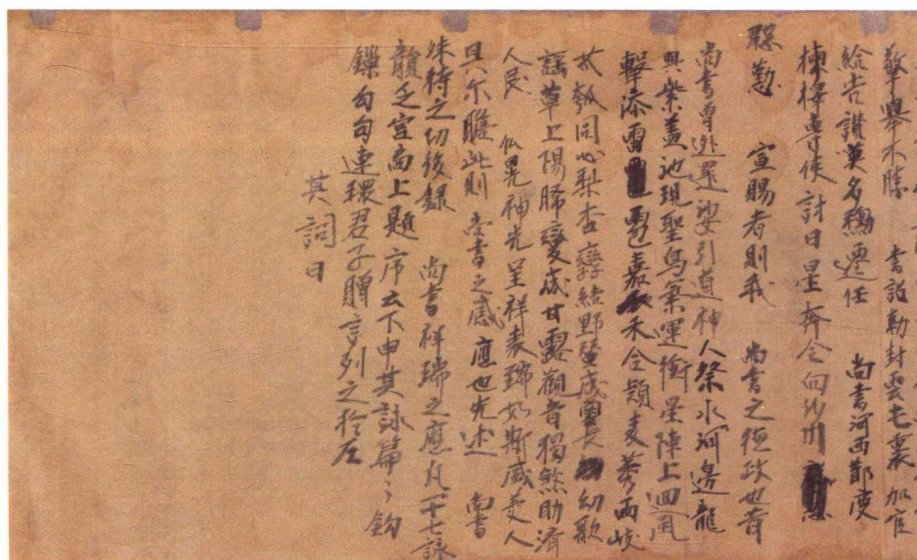 擎舉不勝　書詔勅封雲毛裏加官
給告讚莫名鴻遷任　尚書河西節度
揀擇專使計日星奔令向沙州
慇懃　宣賜者則我　尚書之德政也昔
尚書曾逃還婆引道神人祭水河邊龍
興紫蓋池現聖鳥氣運衝星陣上迴風
擊添雷電嘉禾合穎麦秀両岐
瓠同心梨杏孿結野蚕成璽長幼歌
謡草上陽晞變成甘露觀音獨煞助濟
人民　仏晃神光呈祥表瑞如斯盛美人
具尔瞻此則　尚書之感應也先述　尚書
殊特之功後録　尚書祥瑞之應凡一十七詠
乏宣高上題序云下申其詠篇〻鈎
鏁勾勾連環君子贈言列之於左
其詞曰